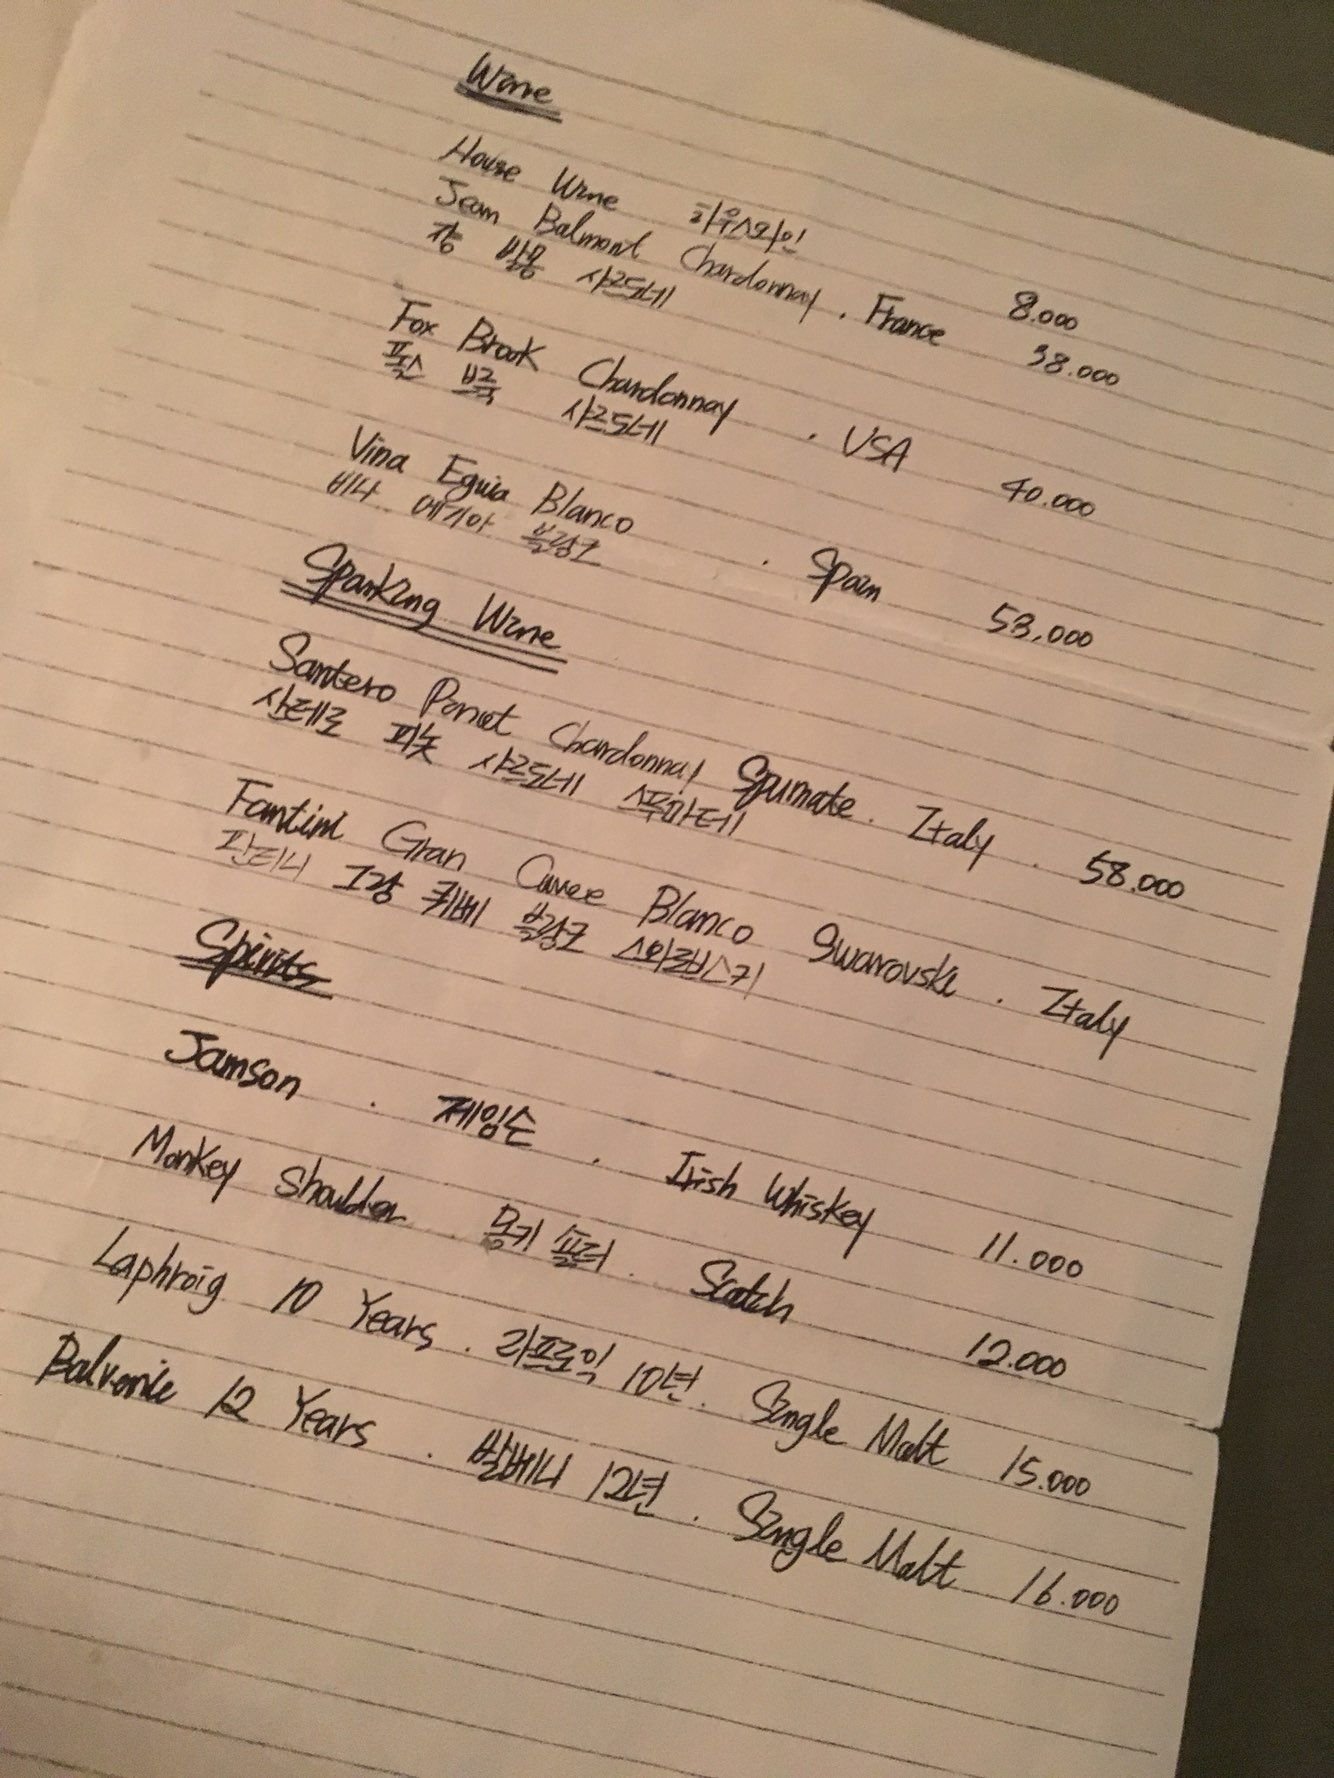 Wine
House Wine 하우스와인 8.000
Jean Balmont Chardonnay . France 38.000
쟝 발몽 샤르도네
Fox Brook Chardonnay . USA 40.000
폭스 브룩 샤르도네
Vina Eguia Blanco . Spain 53,000
비나 에기아 블랑코
Sparking Wine
Santero Pinot Chardonnay Spumate . Italy . 58.000
산테로 피놋 샤르도네 스푸마테
Fantini Gran Cuvee Blanco Swarovski . Italy
판티니 그랑 퀴베 블랑코 스와로브스키
Spirits
Jamson . 제임슨 . Irish Whiskey 11.000
Monkey Shoulder . 몽키 숄더 . Scotch 12.000
Laphroig 10 Years . 라프로익 10년 . Single Malt 15.000
Balvenie 12 Years . 발베니 12년 . Single Malt 16.000